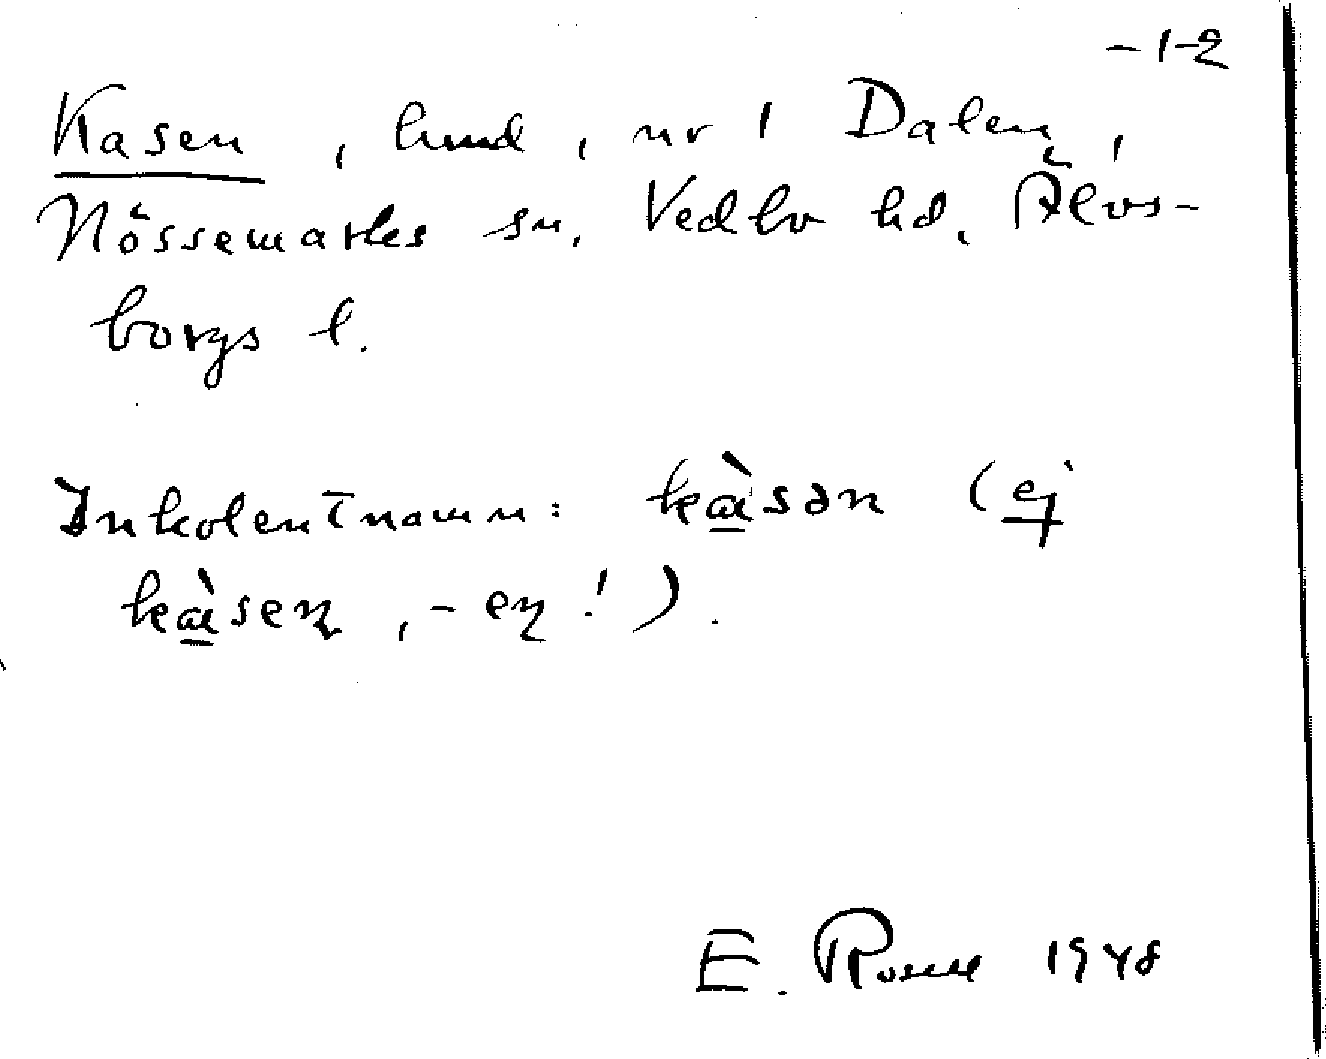 -1-2
Kasen, hmd, nr 1 Dalen,
Nössemarks sn, Vedbo hd, Älvs-
borgs l.
Inkolentnamn: kàsən (ej
kàsen, -en!).
E. 1948